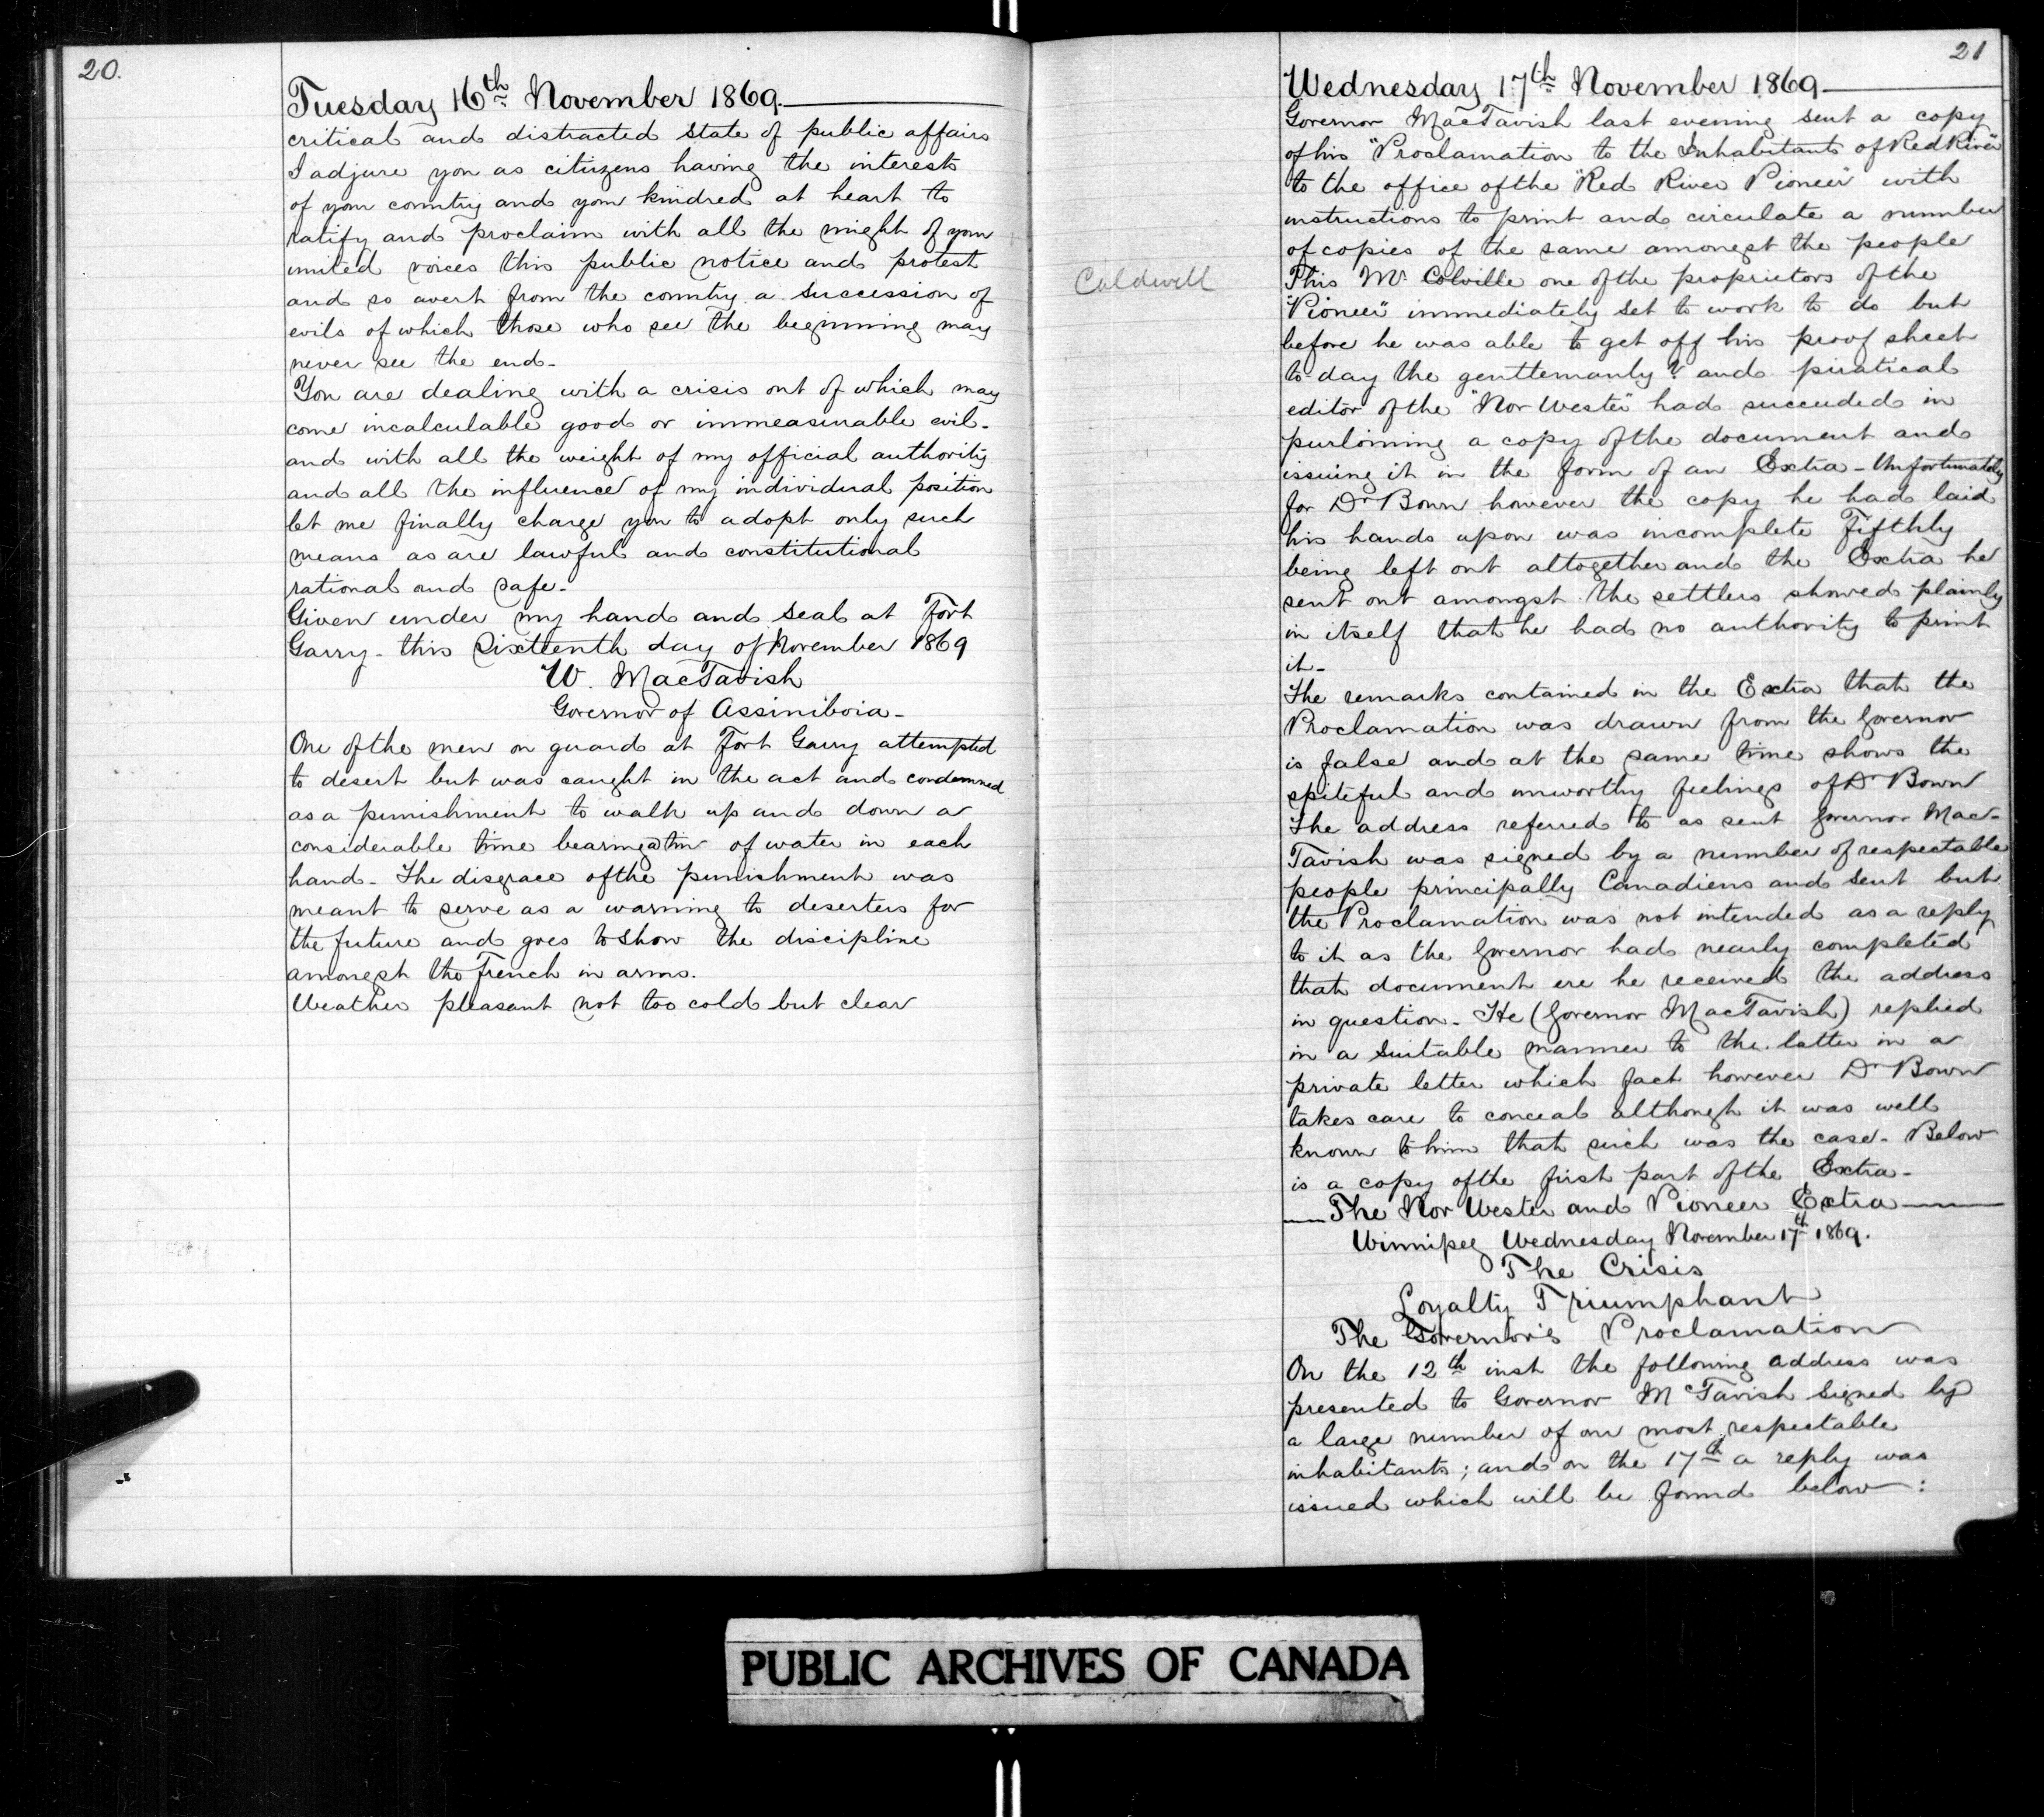 20.
Tuesday 16th November 1869.
critical and distracted state of public affairs
I adjure you as citizens having the interests
of your country and your kindred at heart to
ratify and proclaim with all the might of your
united voices this public notice and protest
and so avert from the country a succession of
evils of which those who see the beginning may
never see the end-
You are dealing with a crisis out of which may
come incalculable good or immeasurable evil-
and with all the weight of my official authority
and all the influence of my individual position
let me finally charge you to adopt only such
means as are lawful and constitutional
rational and safe-
Given under my hand and seal at Fort
Garry- this Sixteenth day of November 1869
W. MacTavish
Governor of Assiniboia-
One of the men on guard at Fort Garry attempted
to desert but was caught in the act and condemned
as a punishment to walk up and down a
considerable time bearing a tin of water in each
hand- The disgrace of the punishment was
meant to serve as a warning to deserters for
the future and goes to show the discipline
amongst the French in arms.
Weather pleasant not too cold but clear
21
Wednesday 17th November 1869
Governor MacTavish last evening sent a copy
of his "Proclamation to the Inhabitants of Red River"
to the office of the "Red River Pioneer" with
instructions to print and circulate a number
of copies of the same amongst the people
Caldwell
This Mr. Colville one of the proprietors of the
"Pioneer" immediately set to work to do but
before he was able to get off his proof sheet
to-day the genttemanly? and piratical
editor of the "Nor Wester" had succeeded in
purloining a copy of the document and
issuing it in the form of an Extra - Unfortunately
for Dr Bown however the copy he had laid
his hands upon was incomplete Fifthly
being left out altogether and the Extra he
sent out amongst the settlers showed plainly
in itself that he had no authority to print
it-
The remarks contained in the Extra that the
Proclamation was drawn from the Governor
is false and at the same time shows the
spiteful and unworthy feelings of Dr Bown
The address referred to as sent Governor Mac-
Tavish was signed by a number of respectable
people principally Canadiens and sent but
the Proclamation was not intended as a reply
to it as the Governor had nearly completed
that document ere he received the address
in question- He (Governor MacTavish) replied
in a suitable manner to the latter in a
private letter which fact however Dr Bown
takes care to conceal although it was well
known to him that such was the case- Below
is a copy of the first part of the Extra-
The Nor Wester and Pioneer Extra
Winnipeg Wednesday November 17th 1869.
The Crisis
Loyalty Triumphant
The Governor's Proclamation
On the 12th inst the following address was
presented to Governor McTavish signed by
a large number of our most respectable
inhabitants; and on the 17th a reply was
issued which will be found below:
PUBLIC ARCHIVES OF CANADA